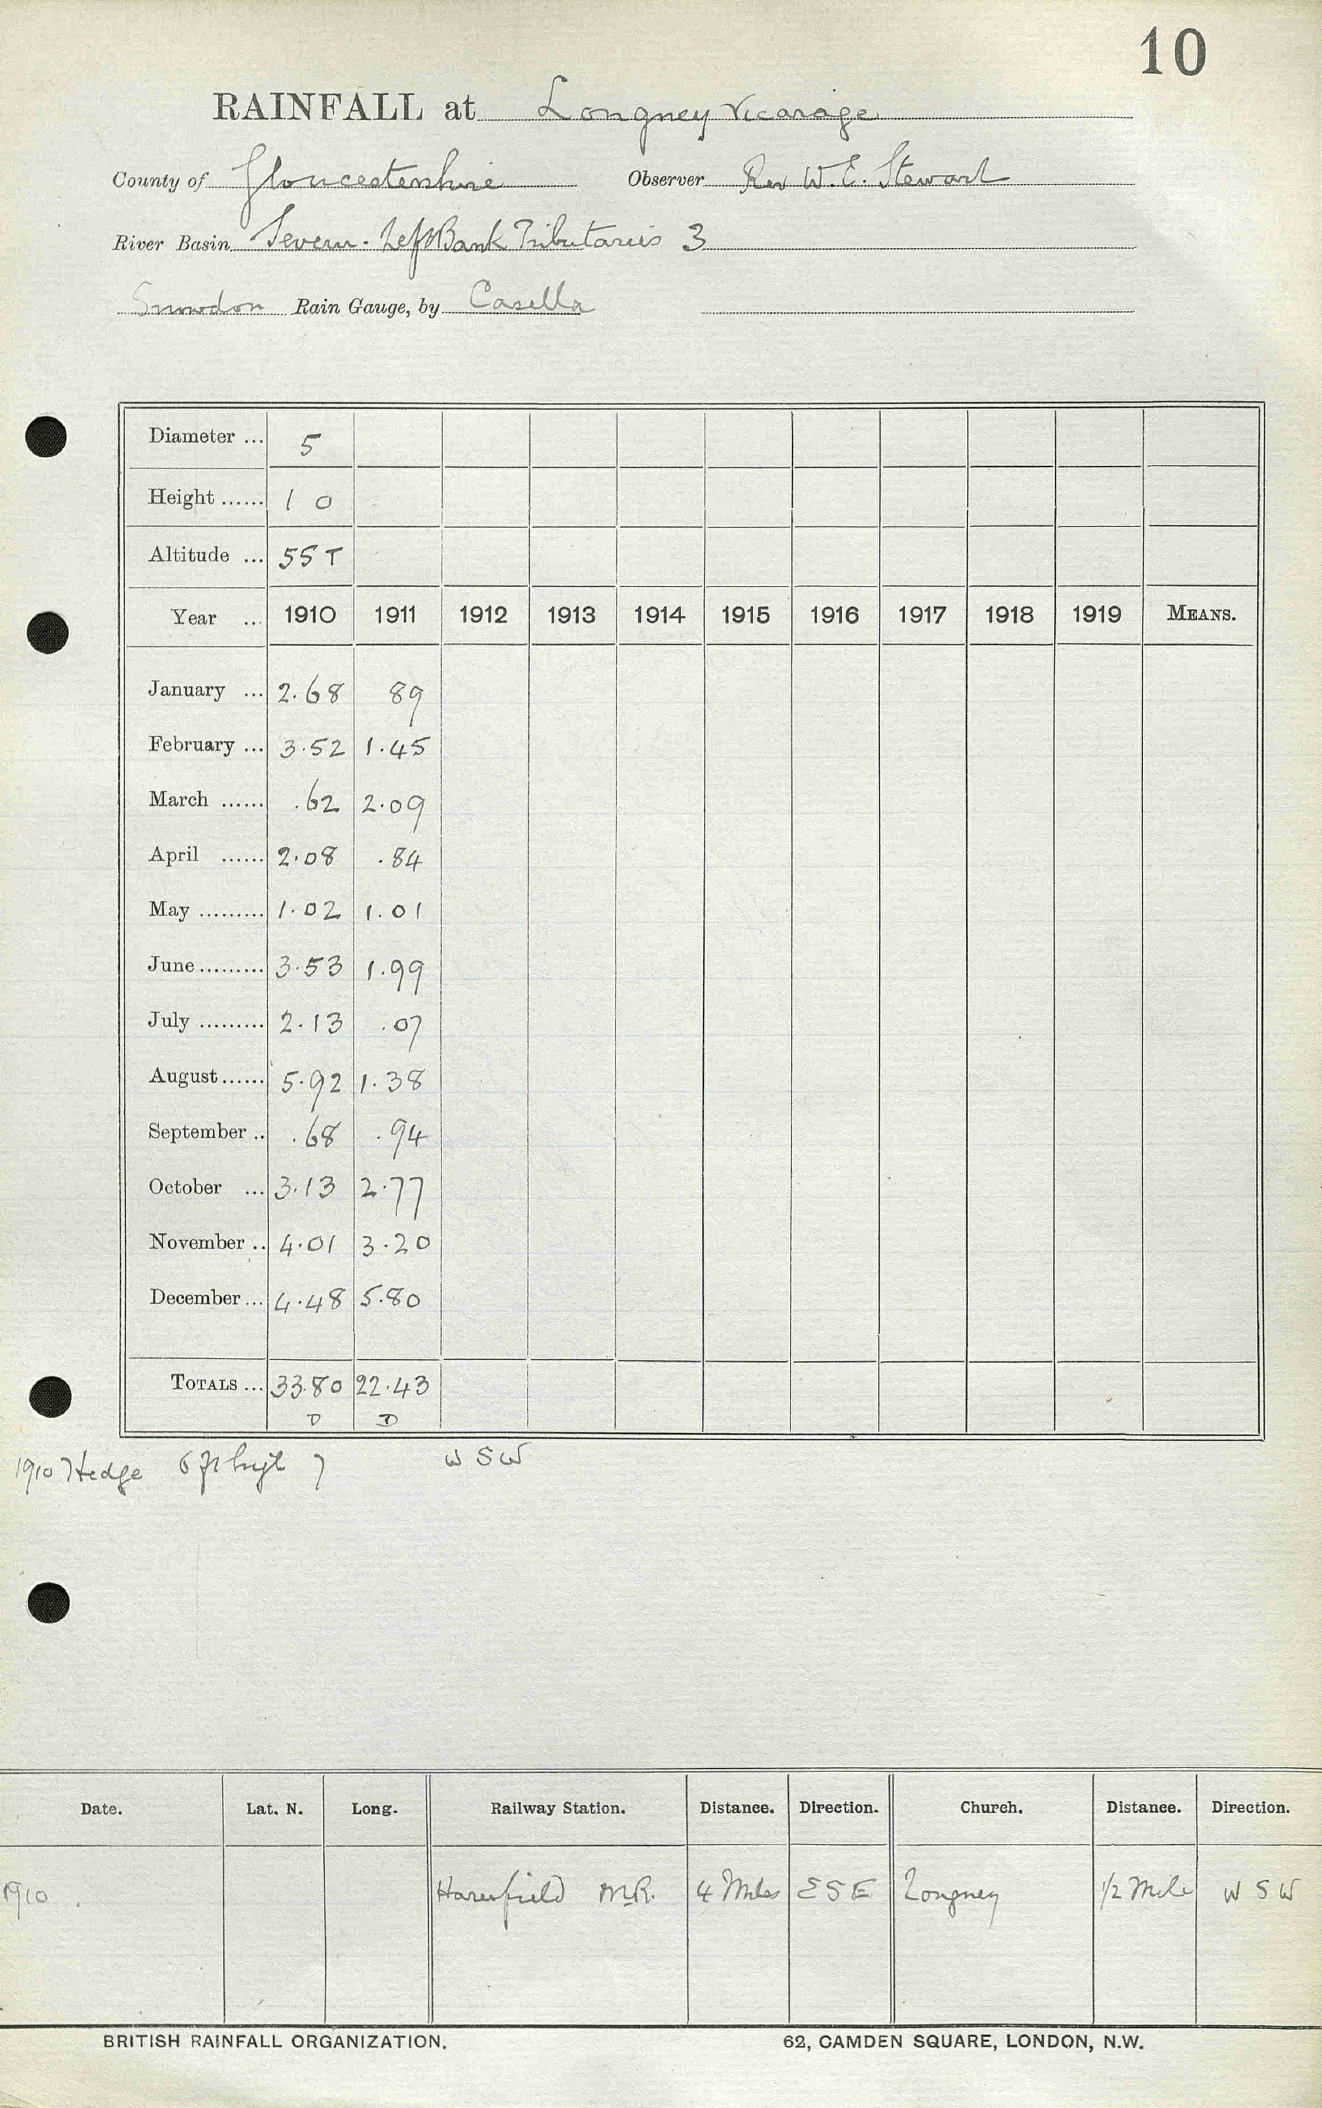 10
RAINFALL at Longney Vicarage
County of Gloucestershire Observer Rev W. E. Stewart
River Basin Severn - Left Bank Tributaries 3
Snowdon Rain Gauge, by Casella
Diameter ... 5
Height ...... 1 0
Altitude ... 55 T
Year ... 1910 1911 1912 1913 1914 1915 1916 1917 1918 1919 MEANS.
January ... 2.68 89
February ... 3.52 1.45
March ...... .62 2.09
April ...... 2.08 .84
May ......... 1.02 1.01
June ......... 3.53 1.99
July ......... 2.13 .07
August ...... 5.92 1.38
September .. .68 .94
October ... 3.13 2.77
November .. 4.01 3.20
December ... 4.48 5.80
TOTALS ... 33.80 22.43
D D
1910 Hedge 6 ft high 7 W S W
Date. Lat. N. Long. Railway Station. Distance. Direction. Church. Distance. Direction.
1910 . Haresfield M.R. 4 Miles E S E Longney 1/2 Mile W S W
BRITISH RAINFALL ORGANIZATION. 62, CAMDEN SQUARE, LONDON, N.W.